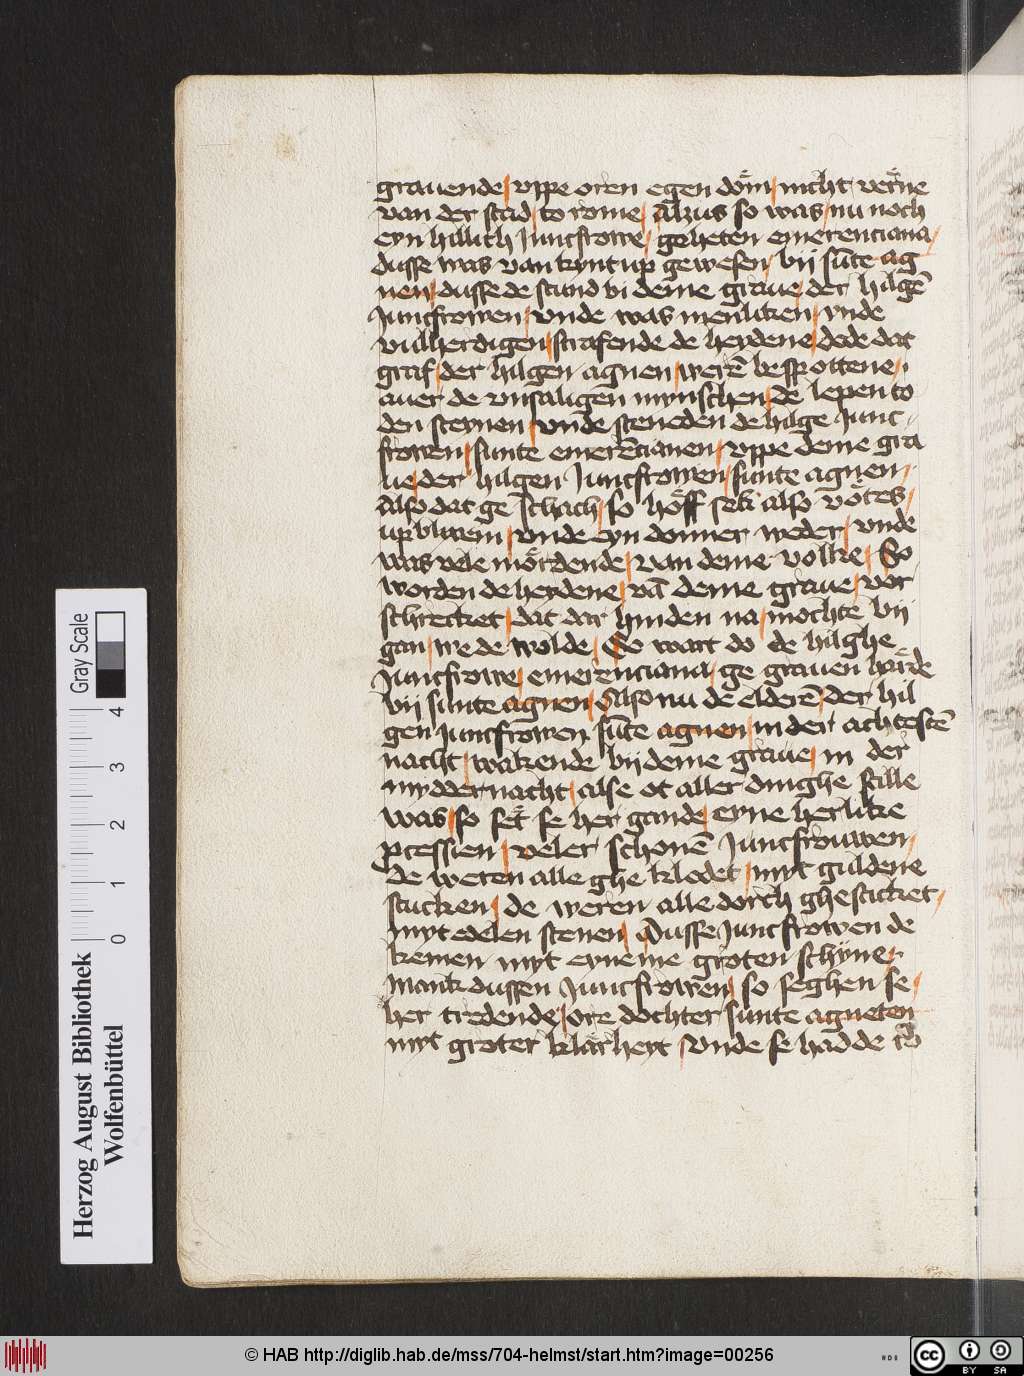 grauende / vppe oren egen döm / nicht verne
van der stad / to rome / Alzus so was / nu noch
eyn hillich Juncfrowe / geheten emerenciana /
dusse was van kynt up gewesen / bij su̅te ag
nen / dusse de stund bi deme graue / der hilge̅
Juncfrowen / vnde was menliken / vnde
vulherdigen / strafende de heydene / dede dat
graf / der hilgen agnen / were̅ bespottene /
auer de vnsaligen mynschen / de lepen to
den steynen / vnde steneden de hilge Junc-
frowen / sunte emere̅cianen / vppe deme gra
ue / der hilgen Juncfrowen / sunte agnen /
Also dat ge schach / so höff sek also vötes /
up blixem / vnde eyn donner weder / vnde
was vele mördende / van deme volke / So
worden de heydene / va̅ deme graue / vor
schrecket / dat dar hinden na / mochte bij
gan / we de wolde / Do wart do de hilghe
Juncfrowe / emerenciana / ge grauen harde
bij sunte agnen / Also nu de eldere̅ / der hil
gen Juncfrowen su̅te agnen / in der achteste̅
nacht / wakende bij deme graue / in der
myddernacht / alse ot aller dinghe stille
was / so set se her gande / eyne herlike
pcessien / veler schone̅ Juncfrouwen /
de weren alle ghe kledet / myt guldene
stucken / de weren alle dorch ghesticket /
myt edelen stenen / Dusse Juncfrowen de
kemen myt eyneme groten schijne /
Mank dussen Juncfrowen / so seghen se /
her tredende / ore dochter sunte agneten
myt groter klarheyt / vnde se hadde to
Herzog August Bibliothek
Wolfenbüttel
0 1 2 3 4
Gray Scale
© HAB http://diglib.hab.de/mss/704-helmst/start.htm?image=00256
HAB
cc BY SA